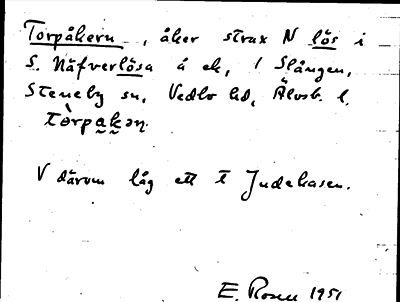 Torpåkern, åker strax N lös i
S. Näfverlösa å ek, / Slången,
Steneby sn, Vedbo hd, Älvsb. l.
tòrpakən.
V därom låg ett t Judekasen.
E. Rosen 1951